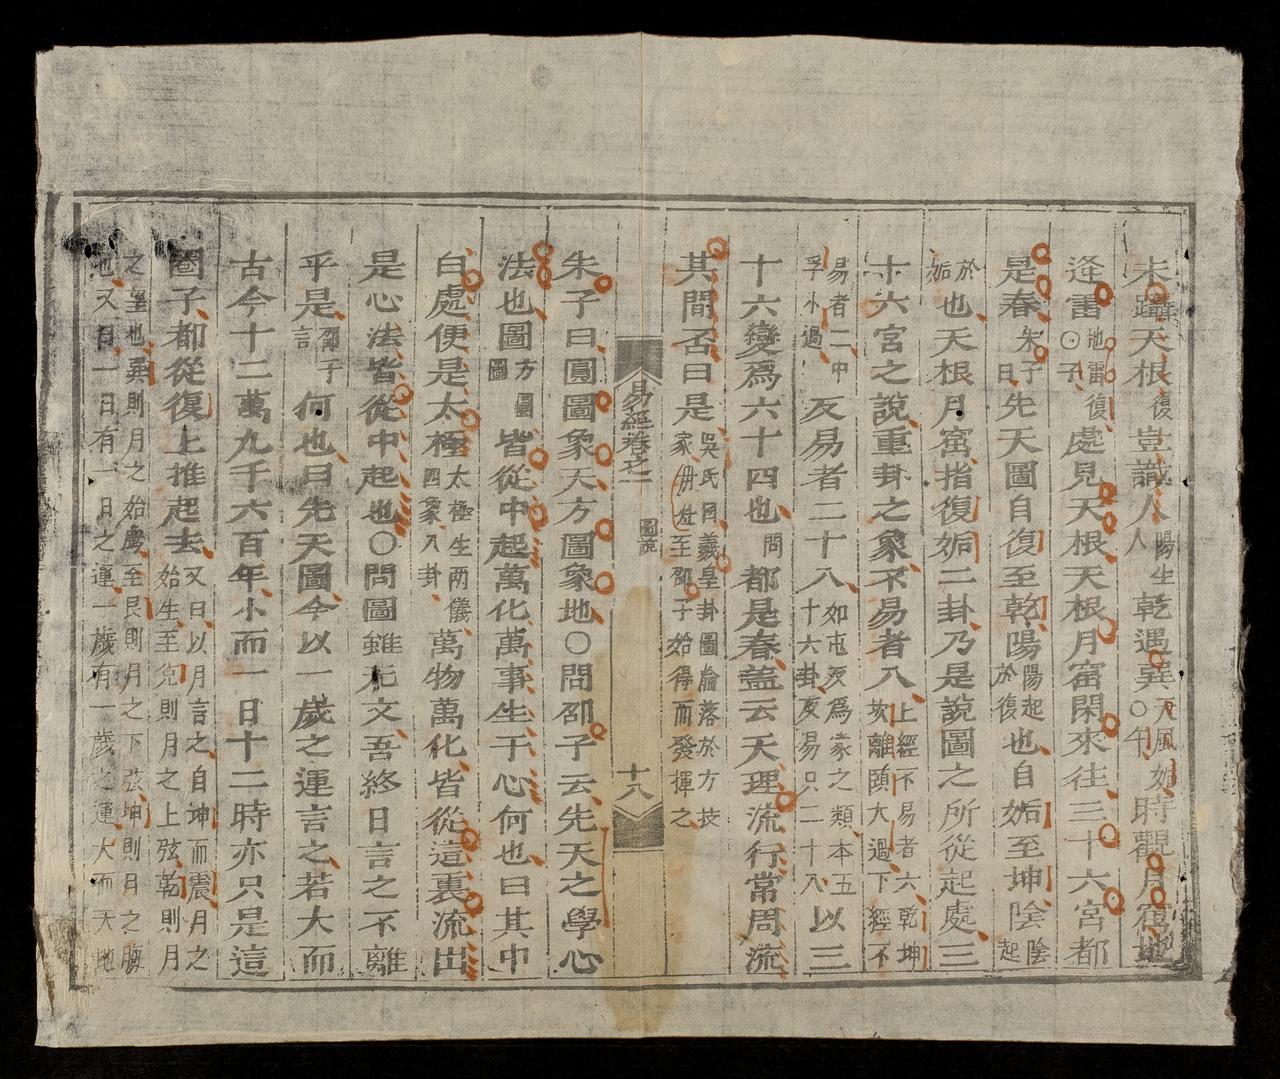 未躡天根復豈識人陽生人乾遇巽天風姤○午時觀月窟地
逢雷地雷復⊙子處見天根天根月窟閑來往三十六宮都
是春朱子曰先天圖自復至乾陽陽起於復也自姤至坤陰陰起
於姤也天根月窟指復姤二卦乃是說圖之所從起處三
十六宮之說重卦之象不易者八上經不易者六乾坤坎離頤大過下經不
易者二中孚小過反易者二十八如屯反爲蒙之類本五十六卦反易只二十八以三
十六變爲六十四也問都是春蓋云天理流行常周流
其間否曰是吳氏曰羲皇卦圖淪落於方技家冊在至邵子始得而發揮之
易經卷之一
圖說
十八
朱子曰圓圖象天方圖象地○問邵子云先天之學心
法也圖方圓圖皆從中起萬化萬事生于心何也曰其中
白處便是太極太極生兩儀四象八卦萬物萬化皆從這裏流出
是心法皆從中起也○問圖雖无文吾終日言之不離
乎是邵子言何也曰先天圖今以一歲之運言之若大而
古今十二萬九千六百年小而一日十二時亦只是這
圈子都從復上推起去又曰以月言之自坤而震月之始生至兌則月之上弦乾則月
之望也巽則月之始虧至艮則月之下弦坤則月之晦也又曰一日有一日之運一歲有一歲之運大而天地